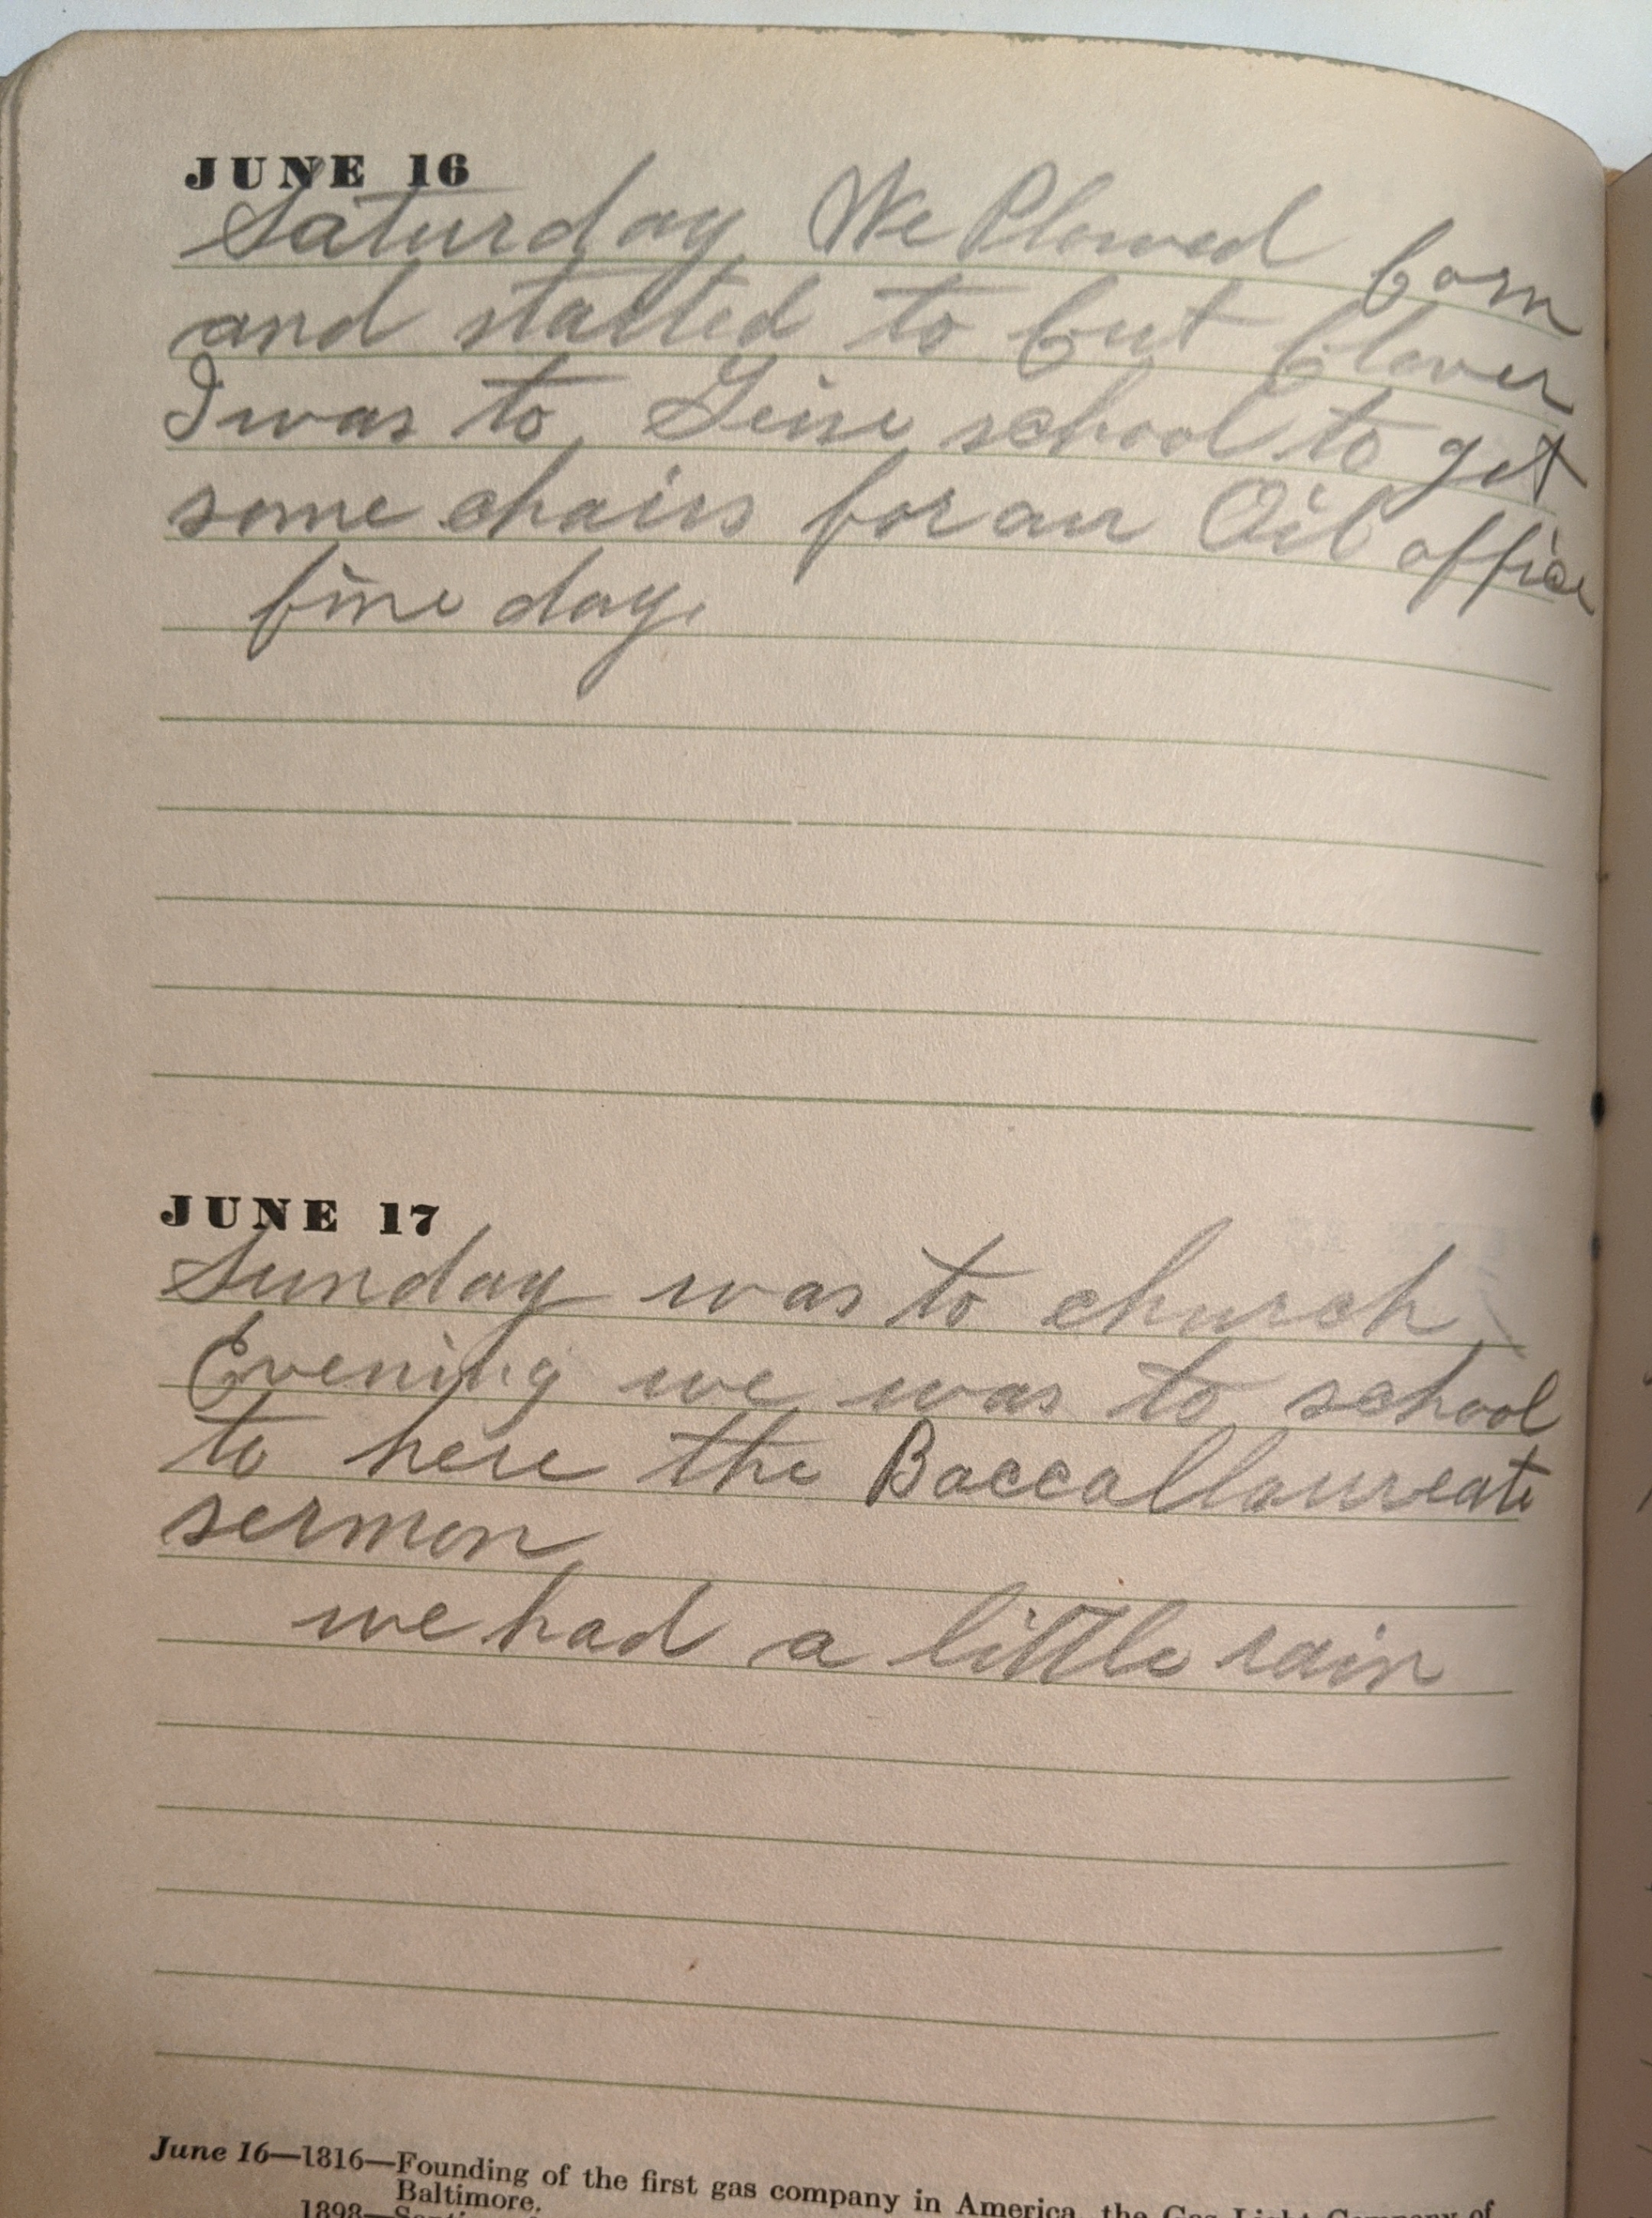 JUNE 16
Saturday We Plowed Corn
and started to Cut Clover
I was to school to get
some chairs for an Oil office
fine day.
JUNE 17
Sunday was to church
Evening we was to school
to here the Baccallaureate
sermon
we had a little rain
June 16—1816—Founding of the first gas company in America, the Gas Light Company of
Baltimore.
1898—